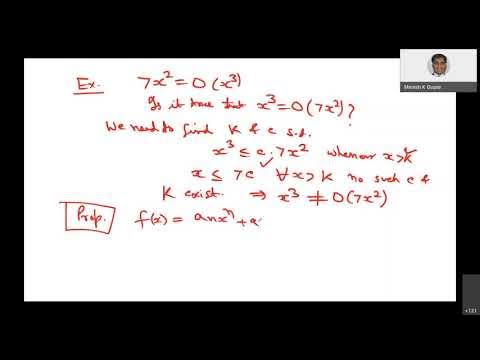 Ex. 7x² = O(x³)
Is it true that x³ = O(7x²)?
We need to find K & c s.t.
x³ ≤ c·7x² whenever x>k
x ≤ 7c ∀ x > K no such c &
K exist. ⇒ x³ ≠ O(7x²)
Prop. f(x) = anxⁿ + a
Manish K Gupta